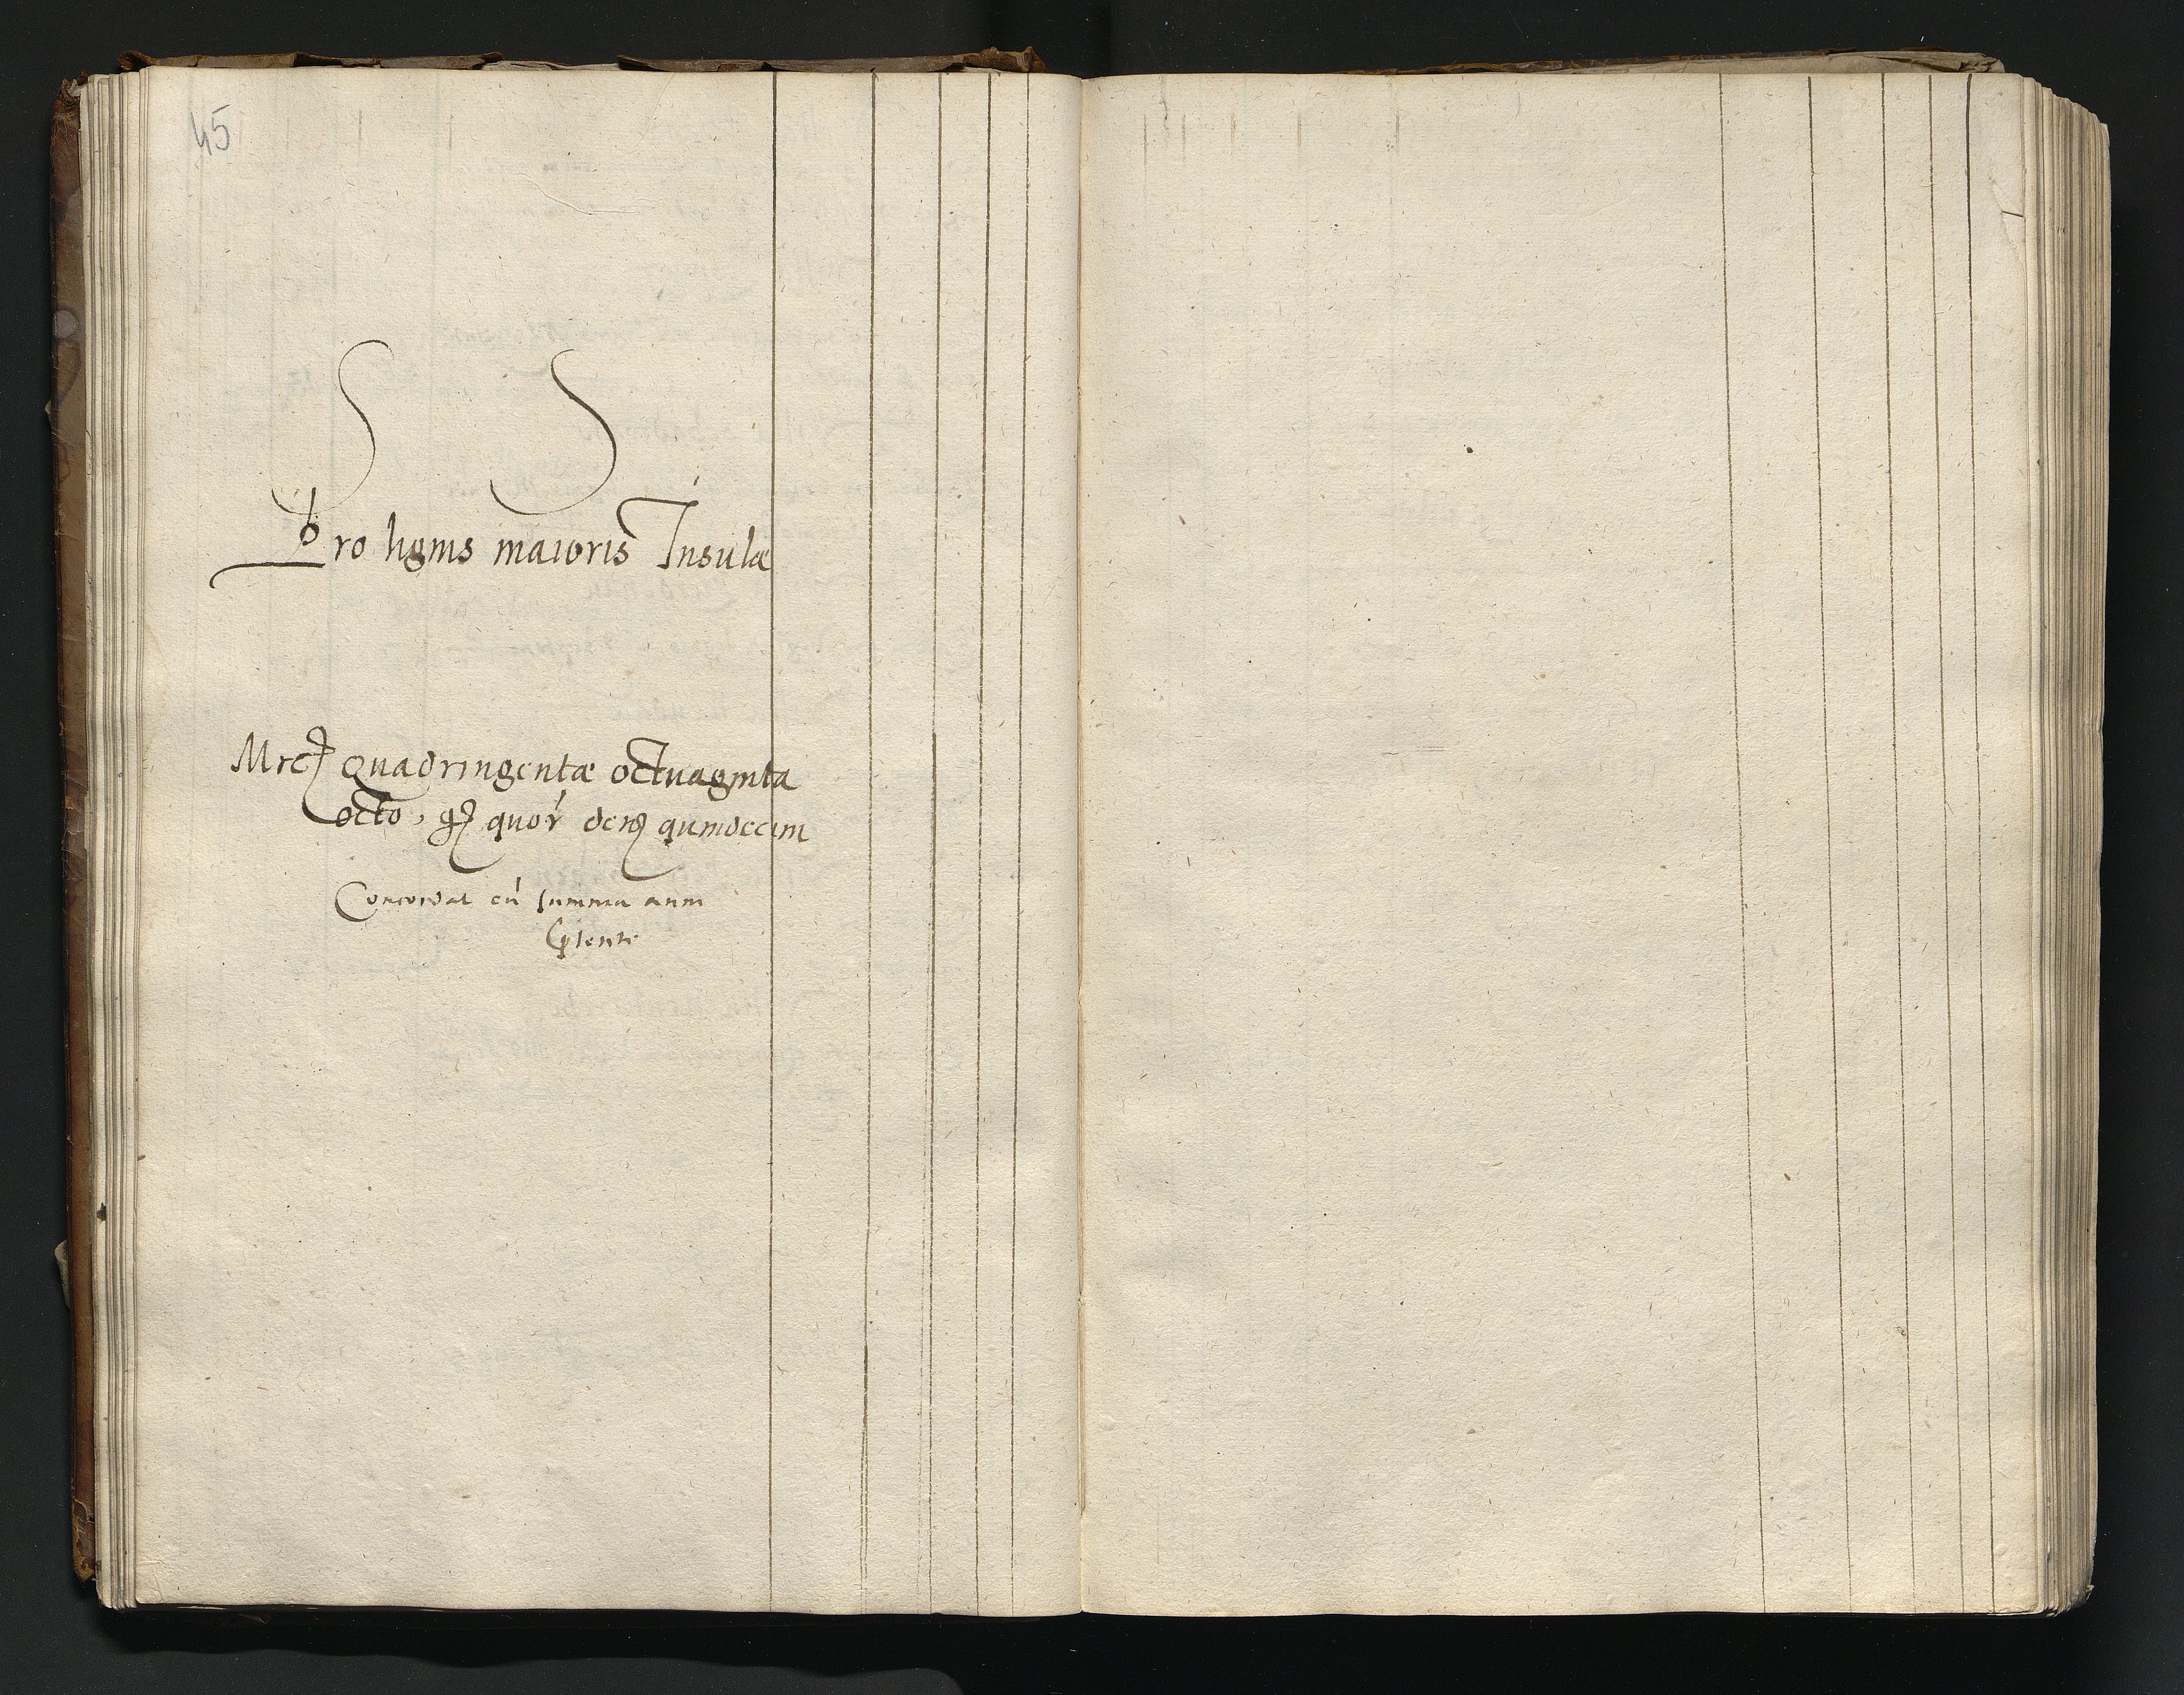 45
S S
Pro lignis maioris Insulæ
Mrc quadringentæ octuaginta
octo, gr quor den quindecim
Concordat cū summa anni
pſenti